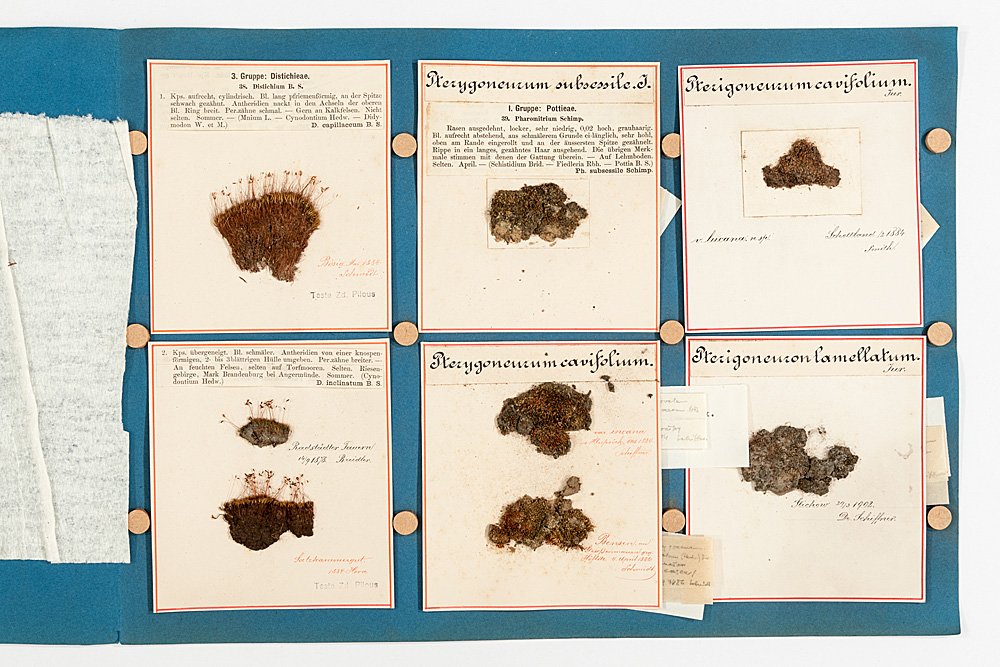 3. Gruppe: Distichieae.
38. Distichium B. S.
1. Kps. aufrecht, cylindrisch. Bl. lang pfriemenförmig, an der Spitze
schwach gezähnt. Antheridien nackt in den Achseln der oberen
Bl. Ring breit. Per.zähne schmal. — Gern an Kalkfelsen. Nicht
selten. Sommer. — (Mnium L. — Cynodontium Hedw. — Didy-
modon W. et M.) D. capillaceum B. S.
1884
Schmidt
Teste Zd. Pilous
Pterygoneurum subsessile. J.
1. Gruppe: Pottieae.
39. Pharomitrium Schimp.
Rasen ausgedehnt, locker, sehr niedrig, 0,02 hoch, grauhaarig.
Bl. aufrecht abstehend, aus schmälerem Grunde ei-länglich, sehr hohl,
oben am Rande eingerollt und an der äussersten Spitze gezähnelt.
Rippe in ein langes, gezähntes Haar ausgehend. Die übrigen Merk-
male stimmen mit denen der Gattung überein. — Auf Lehmboden.
Selten. April. — (Schistidium Brid. — Fiedleria Rbh. — Pottia B. S.)
Ph. subsessile Schimp.
Pterigoneurum cavifolium.
Jur.
v. incana, n. sp.
Schottland 1884
Smith
2. Kps. übergeneigt. Bl. schmäler. Antheridien von einer knospen-
förmigen, 2- bis 3blättrigen Hülle umgeben. Per.zähne breiter. —
An feuchten Felsen, selten auf Torfmooren. Selten. Riesen-
gebirge. Mark Brandenburg bei Angermünde. Sommer. (Cyno-
dontium Hedw.) D. inclinatum B. S.
Radstädter Tauern
Breidler
1884
Teste Zd. Pilous
Pterygoneurum cavifolium.
incana
Bensen
April 1886
Schmidt
Pterigoneuron lamellatum.
Jur.
Stechow 1902.
Dr. Schiffner.